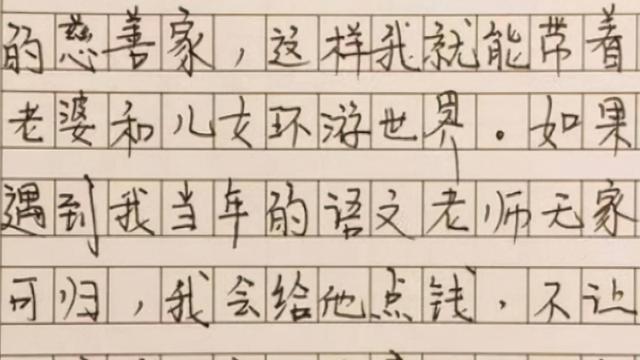 的慈善家，这样我就能带着
老婆和儿女环游世界。如果
遇到我当年的语文老师无家
可归，我会给他点钱，不让